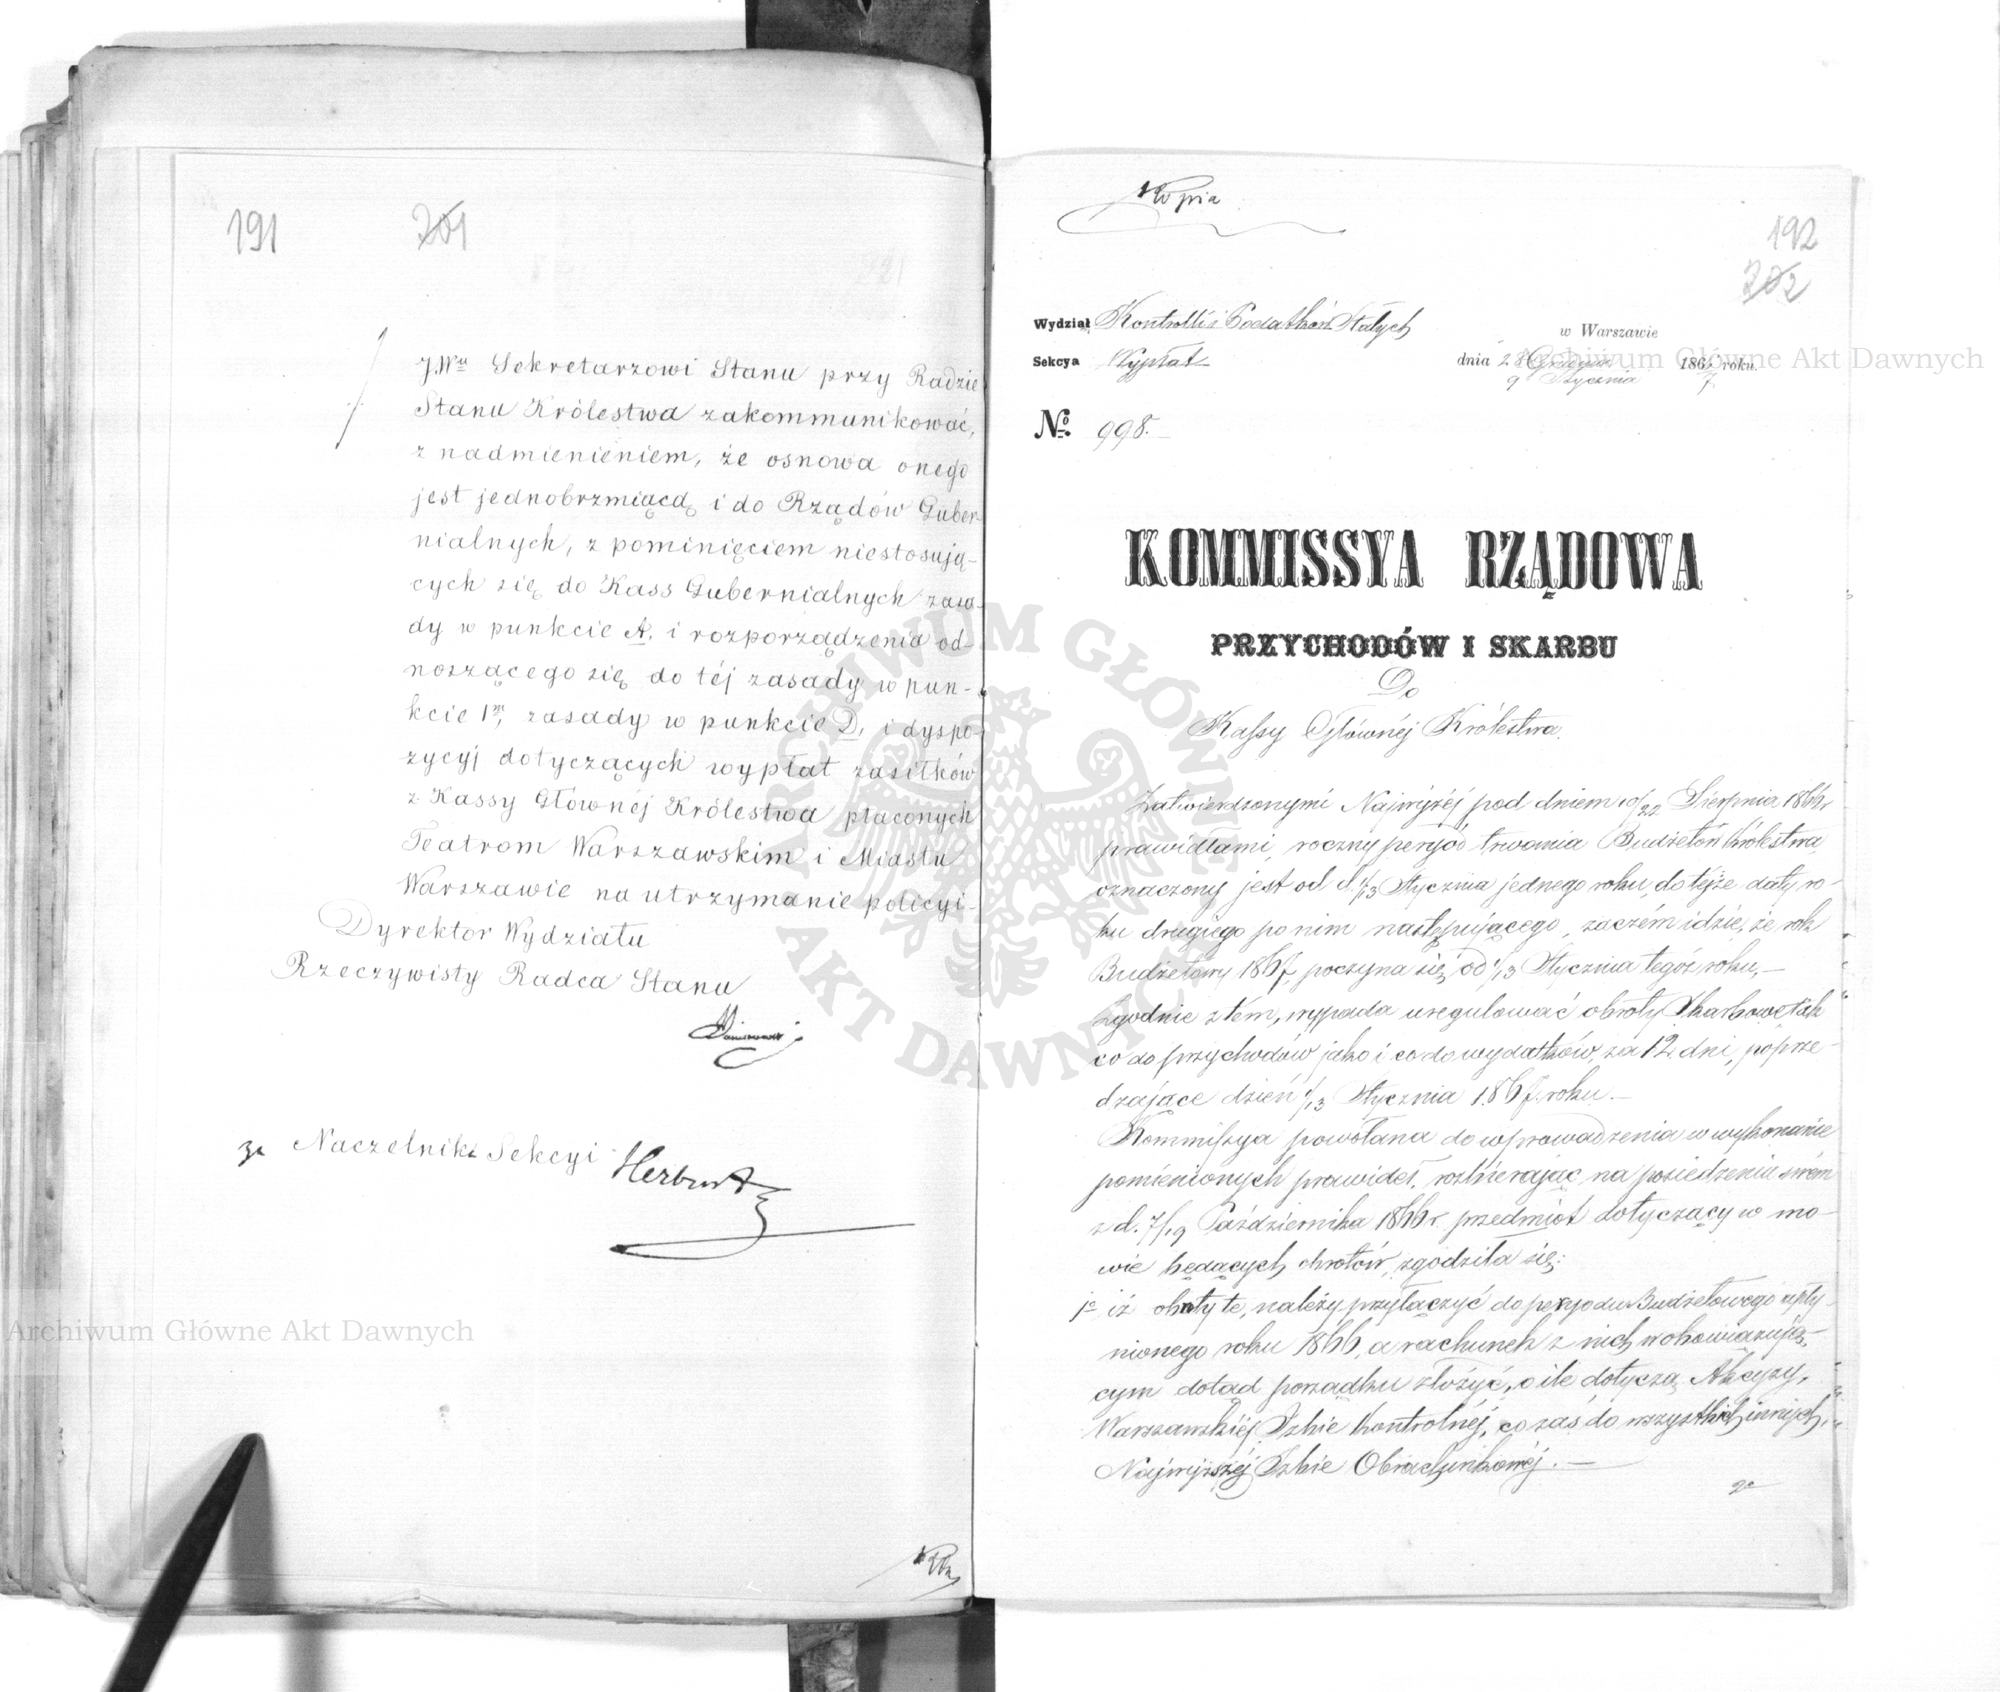 191
201
J.Wu Sekretarzowi Stanu przy Radzie
Stanu Królestwa zakommunikować,
z nadmienieniem, że osnowa onego
jest jednobrzmiącą i do Rządów Guber-
nialnych, z pominięciem niestosują-
cych się do Kass Gubernialnych zasa-
dy w punkcie A. i rozporządzenia od-
noszącego się do téj zasady w pun-
kcie 1m, zasady w punkcie D, i dyspo-
zycyj dotyczących wypłat zasiłków
z Kassy Głównéj Królestwa płaconych
Teatrom Warszawskim i Miastu
Warszawie na utrzymanie policyi.
Dyrektor Wydziału
Rzeczywisty Radca Stanu
za Naczelnika Sekcyi
Kopia
192
202
Wydział Kontrolli i Podatków Stałych
w Warszawie
Sekcya Wypłat
dnia 28 Grudnia 1866/7 roku.
9 Stycznia
No. 998.
KOMMISSYA RZĄDOWA
PRZYCHODÓW I SKARBU
Do
Kassy Głównéj Królestwa.
Zatwierdzonymi Najwyżéj pod dniem 10/22 Sierpnia 1866 r.
prawidłami, roczny peryód trwania Budżetów Królestwa
oznaczony jest od d. 1/13 Stycznia jednego roku, do téjże daty ro-
ku drugiego po nim następującego, zaczém idzie, że rok
Budżetowy 1867, poczyna się od 1/13 Stycznia tegoż roku,—
Zgodnie z tem, wypada uregulować obroty Skarbowe tak
co do przychodów, jako i co do wydatków, za 12 dni, poprze-
dzające dzień 1/13 Stycznia 1867 roku.—
Kommissya powołana do wprowadzenia w wykonanie
pomienionych prawideł, rozbierając na posiedzeniu swém
z d. 7/19 Października 1866 r. przedmiot dotyczący w mo-
wie będących obrotów, zgodziła się:
1o iż obroty te, należy przyłączyć do peryodu Budżetowego upły-
nionego roku 1866, a rachunek z nich w obowiązują-
cym dotąd porządku złożyć, o ile dotyczą Akcyzy,
Warszawskiéj Izbie Kontrolnéj, co zaś do wszystkich innych,
Najwyższéj Izbie Obrachunkowéj.—
2o
Archiwum Główne Akt Dawnych
Archiwum Główne Akt Dawnych
ARCHIWUM GŁÓWNE
AKT DAWNYCH